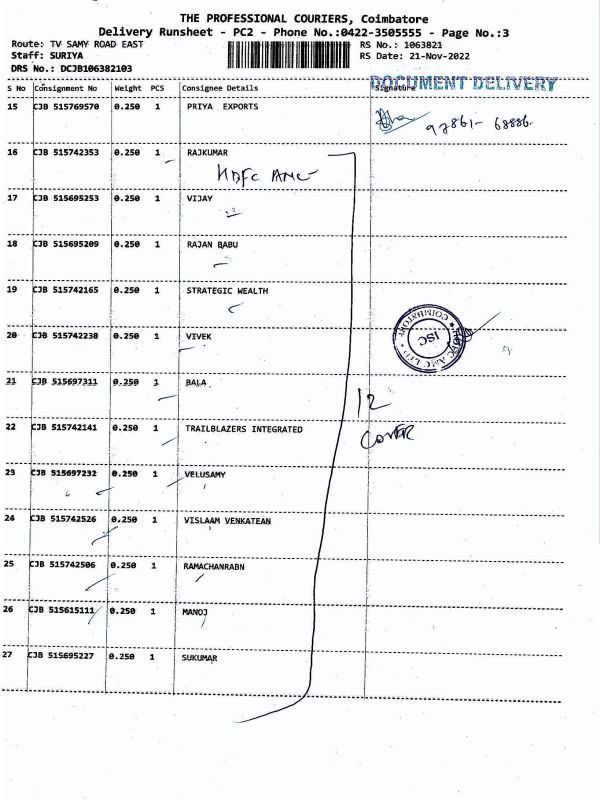 THE PROFESSIONAL COURIERS, Coimbatore
Delivery Runsheet - PC2 - Phone No.:0422-3505555 - Page No.:3
Route: TV SAMY ROAD EAST RS No.: 1063821
Staff: SURIYA RS Date: 21-Nov-2022
DRS No.: DCJB106382103
DOCUMENT DELIVERY
S No Consignment No Weight PCS Consignee Details Signature
15 CJB 515769570 0.250 1 PRIYA EXPORTS
97861-68886
16 CJB 515742353 0.250 1 RAJKUMAR
HDFC AMC
17 CJB 515695253 0.250 1 VIJAY
18 CJB 515695209 0.250 1 RAJAN BABU
19 CJB 515742165 0.250 1 STRATEGIC WEALTH
HDFC AMC LTD * COIMBATORE *
ISC
20 CJB 515742238 0.250 1 VIVEK
21 CJB 515697311 0.250 1 BALA
12
22 CJB 515742141 0.250 1 TRAILBLAZERS INTEGRATED
COVER
23 CJB 515697232 0.250 1 VELUSAMY
24 CJB 515742526 0.250 1 VISLAAM VENKATEAN
25 CJB 515742506 0.250 1 RAMACHANRABN
26 CJB 515615111 0.250 1 MANOJ
27 CJB 515695227 0.250 1 SUKUMAR